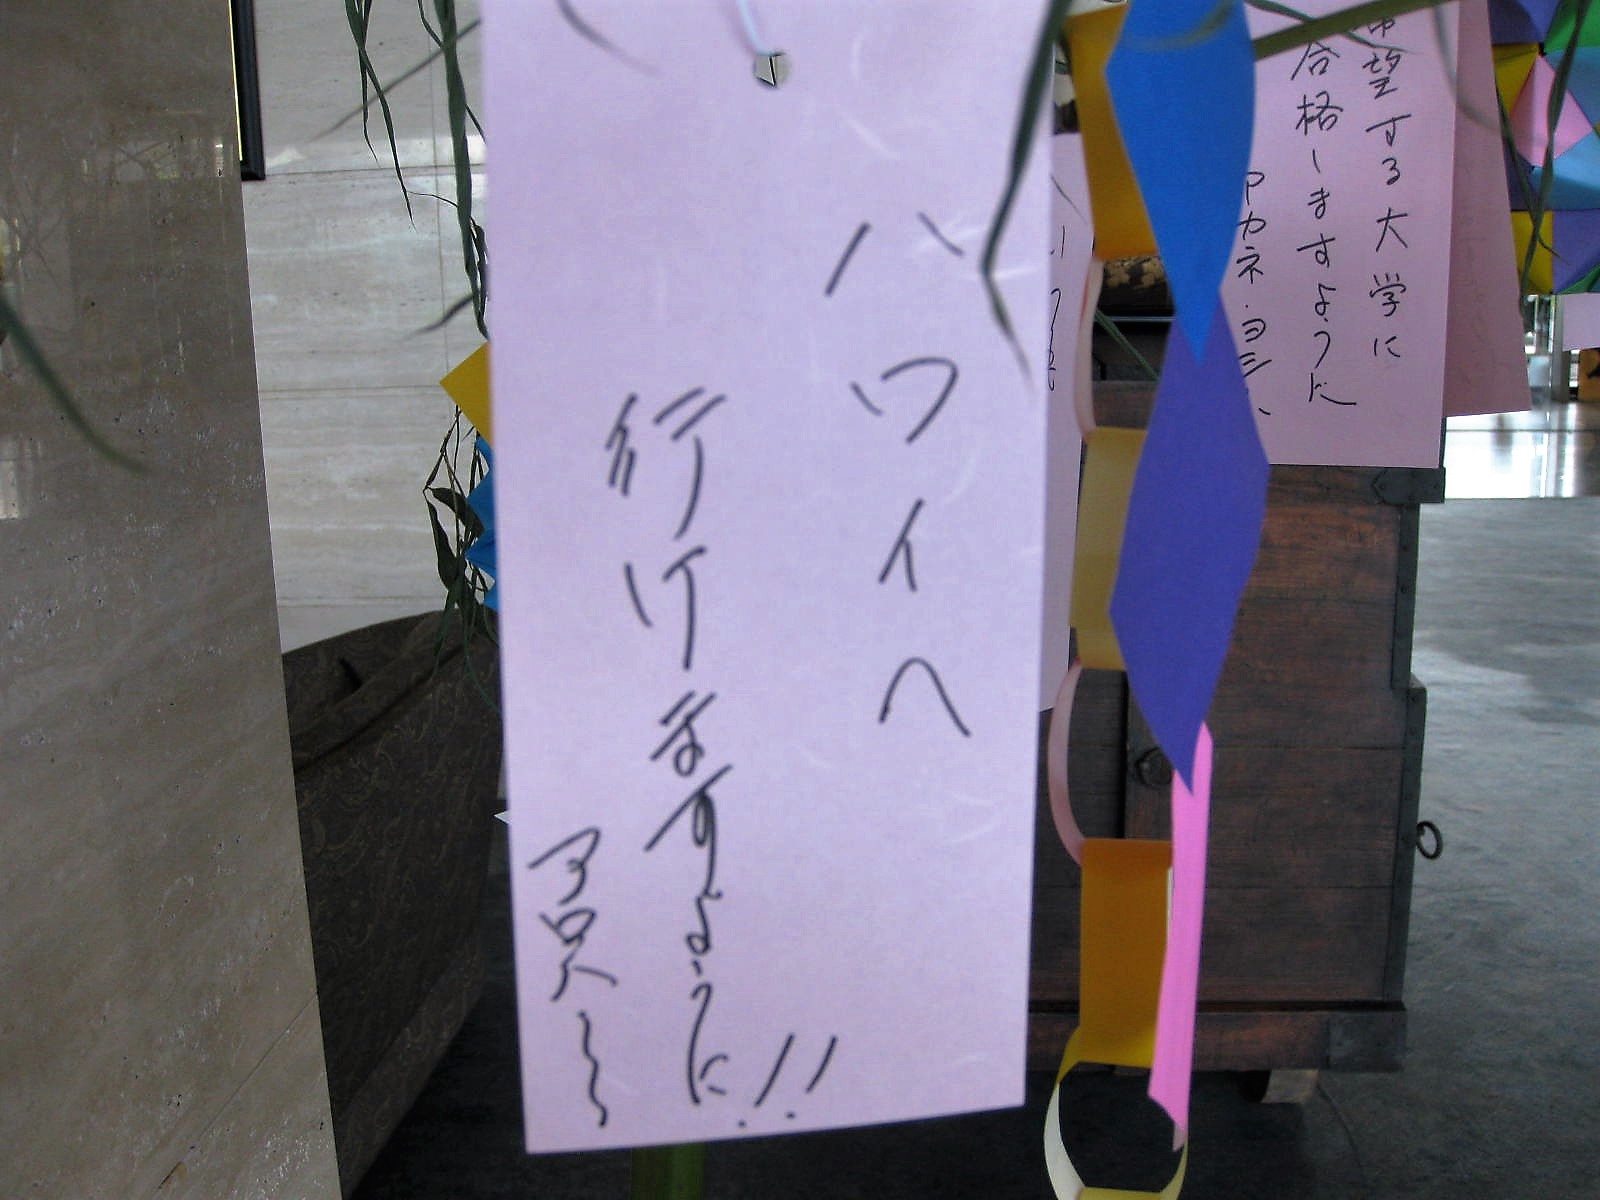 ハワイへ
行けますように!!
希望する大学に
合格しますように
アカネ・ヨシ